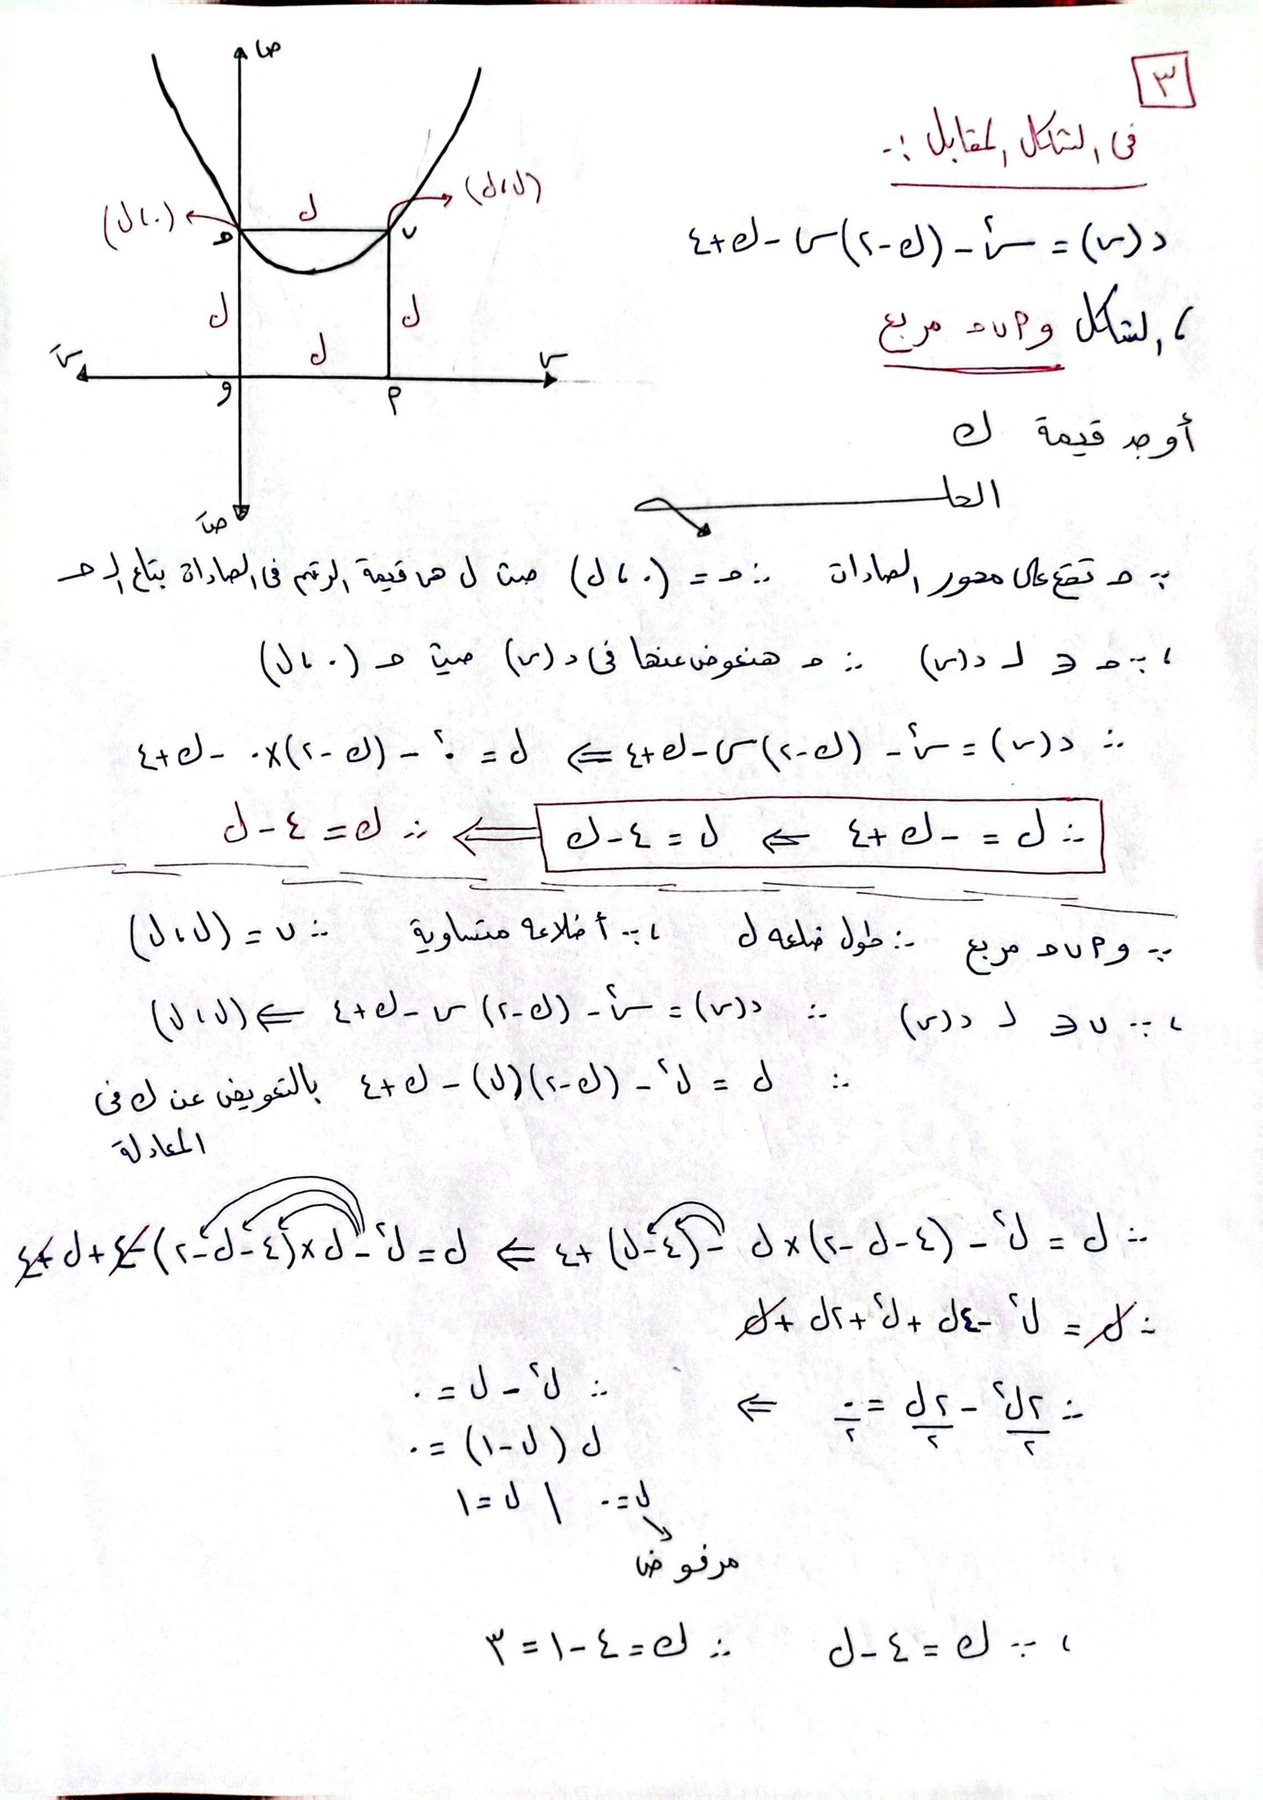 ٣
فى الشكل المقابل :-
د(س) = س٢ - (ك-٢)س - ك+٤
، الشكل و م ب ح مربع
أوجد قيمة ك
الحل
ص
(٠،ل)
ل
(ل،ل)
ح
ب
ل
ل
ل
سَ
س
و
م
صَ
∵ ح تقع على محور الصادات ∴ ح = (٠،ل) حيث ل هى قيمة الرقم فى الصادات بتاع الـ ح
، ∵ ح ∈ لـ د(س) ∴ ح هنعوض عنها فى د(س) حيث ح (٠،ل)
∴ د(س) = س٢ - (ك-٢)س - ك+٤ ⇐ ل = ٠٢ - (ك-٢)×٠ - ك+٤
∴ ل = -ك+٤ ⇐ ل = ٤-ك ⇐ ∴ ك = ٤-ل
∵ و م ب ح مربع ∴ طول ضلعه ل ، ∵ أضلاعه متساوية ∴ ب = (ل،ل)
، ∵ ب ∈ لـ د(س) ∴ د(س) = س٢ - (ك-٢)س - ك+٤ ⇐ (ل،ل)
∴ ل = ل٢ - (ك-٢)(ل) - ك+٤ بالتعويض عن ك فى
المعادلة
∴ ل = ل٢ - (٤-ل-٢)×ل - (٤-ل)+٤ ⇐ ل = ل٢ - ل×(٤-ل-٢) - ٤+ل+٤
∴ ل = ل٢ - ٤ل + ل٢ + ٢ل + ل
∴ ٢ل٢/٢ - ٢ل/٢ = ٠/٢ ⇐ ∴ ل٢ - ل = ٠
ل (ل-١) = ٠
ل=٠ | ل=١
مرفوض
، ∵ ك = ٤-ل ∴ ك = ٤-١ = ٣